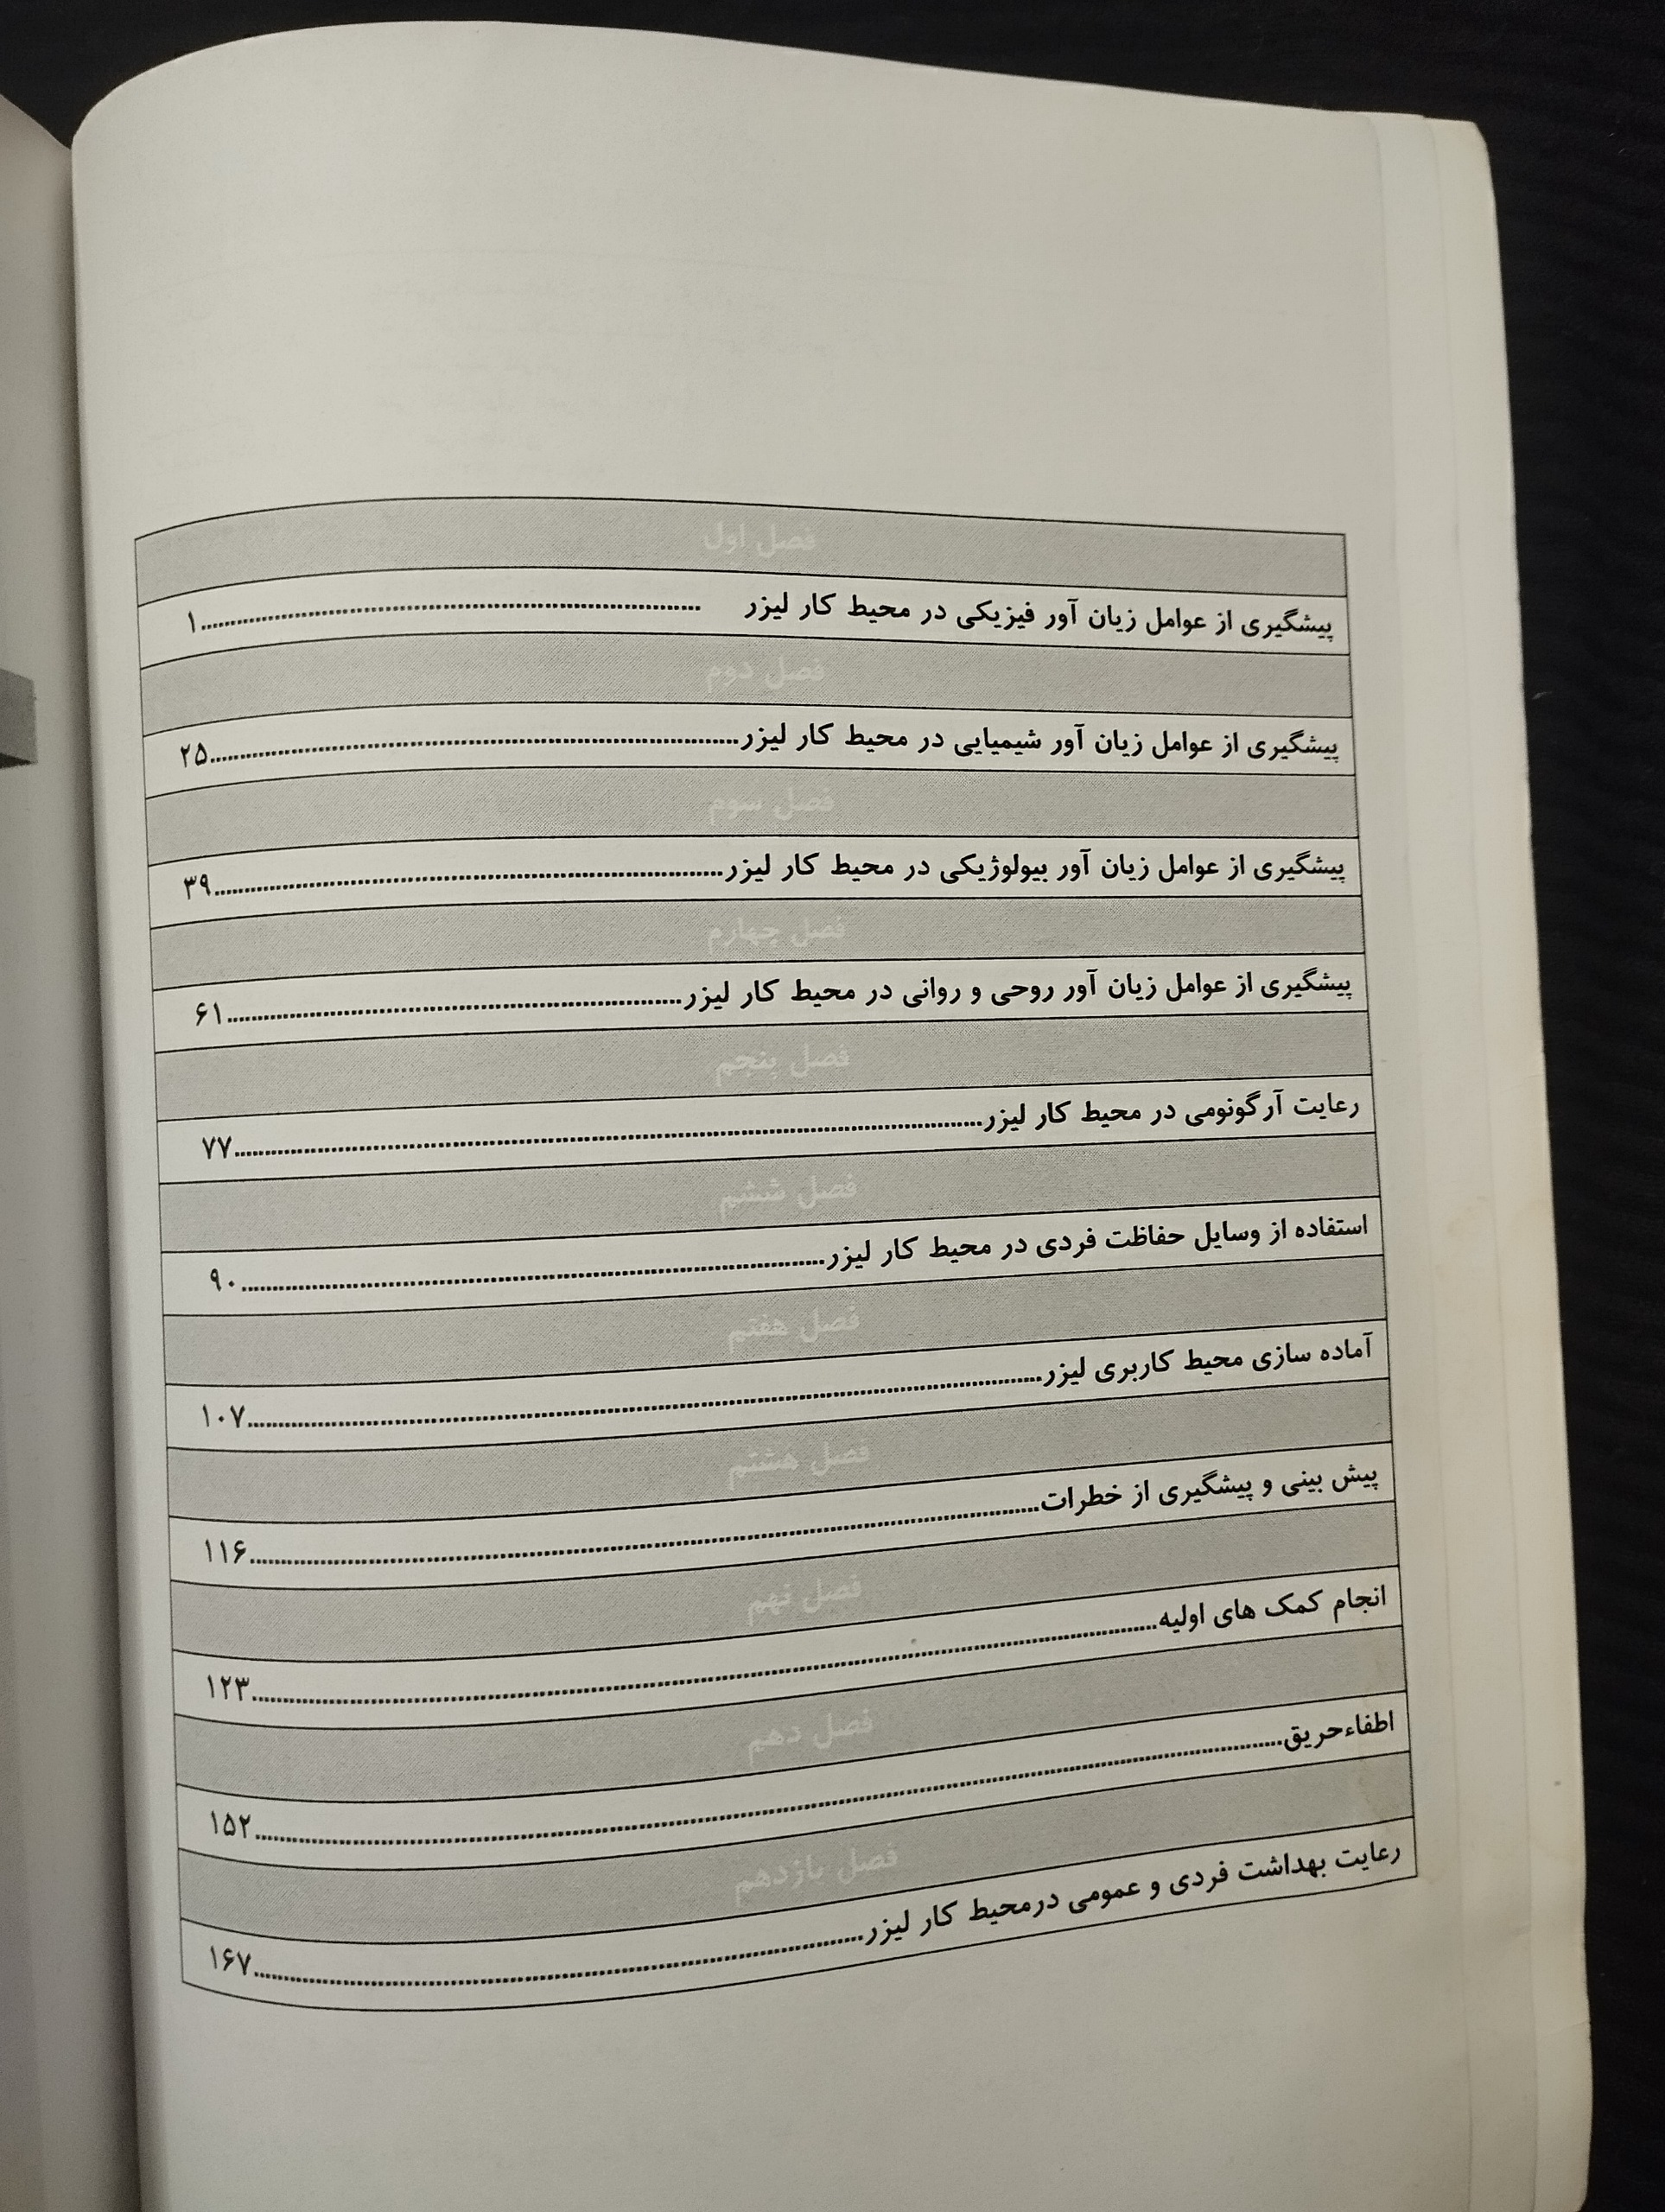 فصل اول
پیشگیری از عوامل زیان آور فیزیکی در محیط کار لیزر ........................ ۱
فصل دوم
پیشگیری از عوامل زیان آور شیمیایی در محیط کار لیزر........................۲۵
فصل سوم
پیشگیری از عوامل زیان آور بیولوژیکی در محیط کار لیزر........................۳۹
فصل چهارم
پیشگیری از عوامل زیان آور روحی و روانی در محیط کار لیزر........................۶۱
فصل پنجم
رعایت آرگونومی در محیط کار لیزر........................۷۷
فصل ششم
استفاده از وسایل حفاظت فردی در محیط کار لیزر........................۹۰
فصل هفتم
آماده سازی محیط کاربری لیزر........................۱۰۷
فصل هشتم
پیش بینی و پیشگیری از خطرات........................۱۱۶
فصل نهم
انجام کمک های اولیه........................۱۲۳
فصل دهم
اطفاءحریق........................۱۵۲
فصل یازدهم
رعایت بهداشت فردی و عمومی درمحیط کار لیزر........................۱۶۷